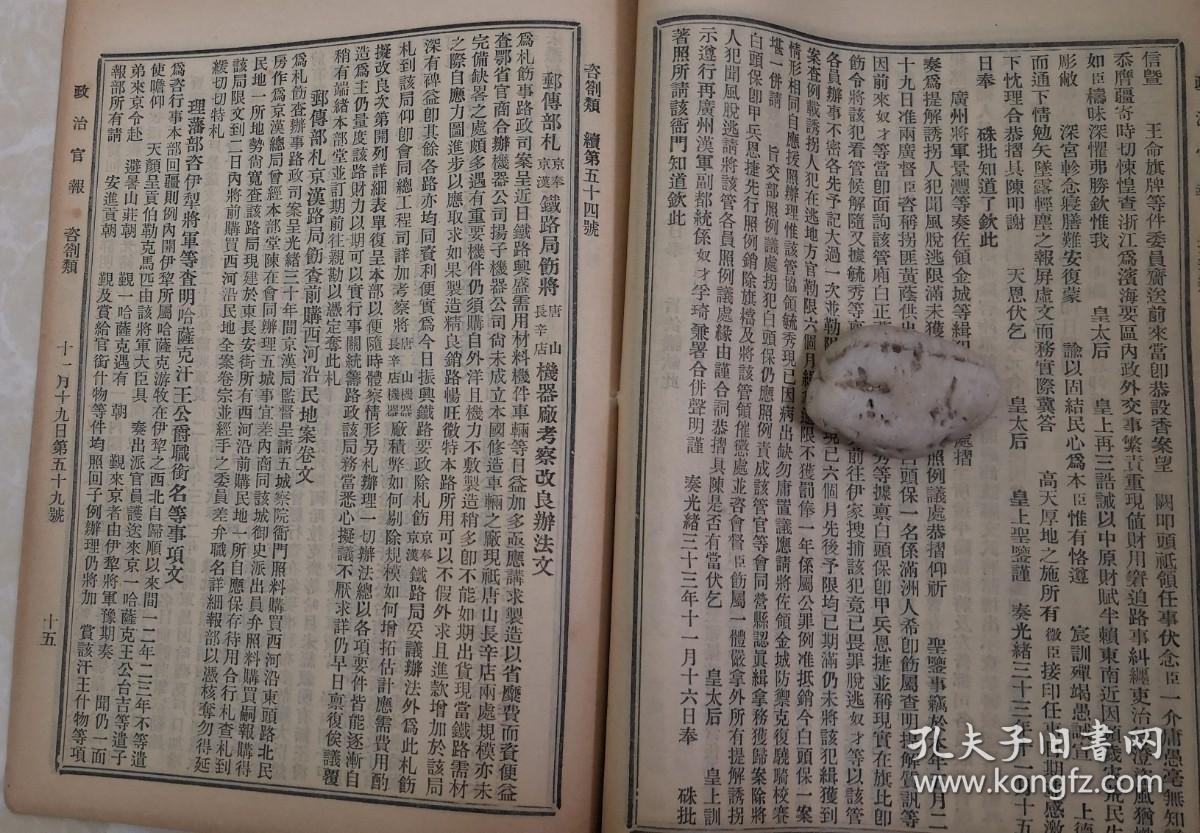 信暨 王命旗牌等件委員齎送前來當卽恭設香案望 闕叩頭祇領任事伏念臣一介庸愚毫無知
忝膺疆寄時切悚惶查浙江爲濱海要區內政外交事繁責重現値財用窘迫路事糾纏吏治
如臣檮昧深懼弗勝欽惟我 皇太后 皇上再三誥誡以中原財賦半賴東南近因
彫敝 深宮軫念寢膳難安復蒙 諭以固結民心爲本臣惟有恪遵 宸訓殫竭愚
而通下情勉矢墜露輕塵之報屏虛文而務實際冀答 高天厚地之施所有微臣接印任事日期感激
下忱理合恭摺具陳叩謝 天恩伏乞 皇太后 皇上聖鑒謹 奏光緒三十三年十一月十五
日奉 硃批知道了欽此
廣州將軍景灃等奏佐領金城等緝
奏爲提解誘拐人犯聞風脫逃限滿未獲 照例議處恭摺仰祈 聖鑒事竊於本年 月二
十九日准兩廣督臣咨稱拐匪黃蔭供出 白頭保一名係滿洲人希卽飭屬查明埼解質訊等
因前來奴才等當卽面詢該管廂白正 等據禀白頭保卽甲兵恩捷並稱現實在旗比卽
飭令將該犯看管候解隨又據毓秀等 前往伊家搜捕該犯竟已畏罪脫逃奴才等以該管
各員辦事不密各先予記大過一次並勒限 現已六個月先後予限均已期滿仍未將該犯緝獲到
案查例載誘拐人犯在逃地方官勒限六個月 逾限不獲罰俸一年係屬公罪例准抵銷今白頭保一案
情形相同自應援照辦理惟該管協領毓秀現已因病出缺勿庸置議應請將佐領金城防禦克復驍騎校賽
堪一併請 旨交部照例議處拐犯白頭保仍應照例責成該管官等會同營縣認眞緝拿務獲歸案除將
白頭保卽甲兵恩捷先行照例銷除旗檔及將該管領催懲處並咨會督臣飭屬一體嚴拿外所有提解誘拐
人犯聞風脫逃請將該管各員照例議處緣由謹合詞恭摺具陳是否有當伏乞 皇太后 皇上訓
示遵行再廣州漢軍副都統係奴才孚琦兼署合併聲明謹 奏光緒三十三年十一月十六日奉 硃批
著照所請該衙門知道欽此
咨劄類 續第五十四號
郵傳部札京奉京漢鐵路局飭將唐山長辛店機器廠考察改良辦法文
爲札飭事路政司案呈近日鐵路興盛需用材料機件車輛等日益加多亟應講求製造以省縻費而資便益
查鄂省官商合辦機器公司揚子機器公司尙未成立本國修造車輛之廠現祇唐山長辛店兩處規模亦未
完備缺畧之處頗多遇有重要機件仍須購自外洋且機力不敷製造稍多卽不能如期出貨現當鐵路需材
之際自應力圖進步以應取求如果製造精良銷路暢旺微特本路所用可以不假外求且進款增加於該局
深有碑益卽其餘各路亦均同資利便實爲今日振興鐵路要政除札飭京奉京漢鐵路局妥議辦法外爲此札飭
札到該局仰卽會同總工程司詳加考察將唐山長辛店機器廠積弊如何剔除規模如何增拓估計應需費用酌
擬改良次第開列詳細表單復呈本部以便隨時體察情形另札辦理一切辦法總以各項要件皆能逐漸自
造爲主仍量度該路財力以期可以實行事關統籌路政該局務當悉心擬議不厭求詳仍早日禀復俟議覆
稍有端緒本部堂並訂期前往親勘以憑定奪此札
郵傳部札京漢路局飭查前購西河沿民地案卷文
爲札飭查辦事路政司案呈光緒三十年間京漢局監督呈請五城察院衙門照料購買西河沿東頭路北民
房作爲京漢總局曾經本部堂陳在會同辦理五城事宜差內商同該城御史派出員弁照料購買嗣報購得
民地一所地勢尙寬查該路局現建於東長安街所有西河沿前購民地一所自應保存待用合行札查札到
該局限文到二日內將前購買西河沿民地全案卷宗並經手之委員差弁職名詳細報部以憑核奪勿得延
緩切切特札
理藩部咨伊犁將軍等查明哈薩克汗王公爵職銜名等事項文
爲咨行事本部回疆則例內開伊犁所屬哈薩克游牧在伊犁之西北自歸順以來間一二年二三年不等遣
使瞻仰 天顏呈貢伯勒克馬匹由該將軍大臣具 奏出派官員護送來京一哈薩克王公台吉等遣子
弟來京令赴 避暑山莊朝 覲一哈薩克遇有 朝 覲來京者由伊犁將軍豫期奏 聞仍一面
報部所有請 安進貢朝 覲及賞給官銜什物等件均照回子例辦理仍將加 賞該汗王什物等項
政治官報 咨劄類
十一月十九日第五十九號
十五
孔夫子旧書网
www.kongfz.com